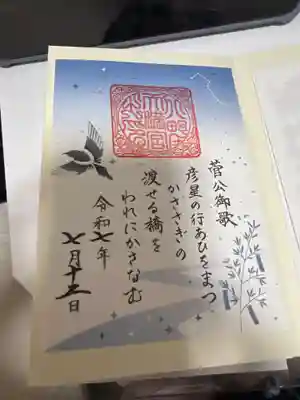 菅公御歌
彦星の行あひをまつ
かささぎの
渡せる橋を
われにかさなむ
令和七年
七月十五日